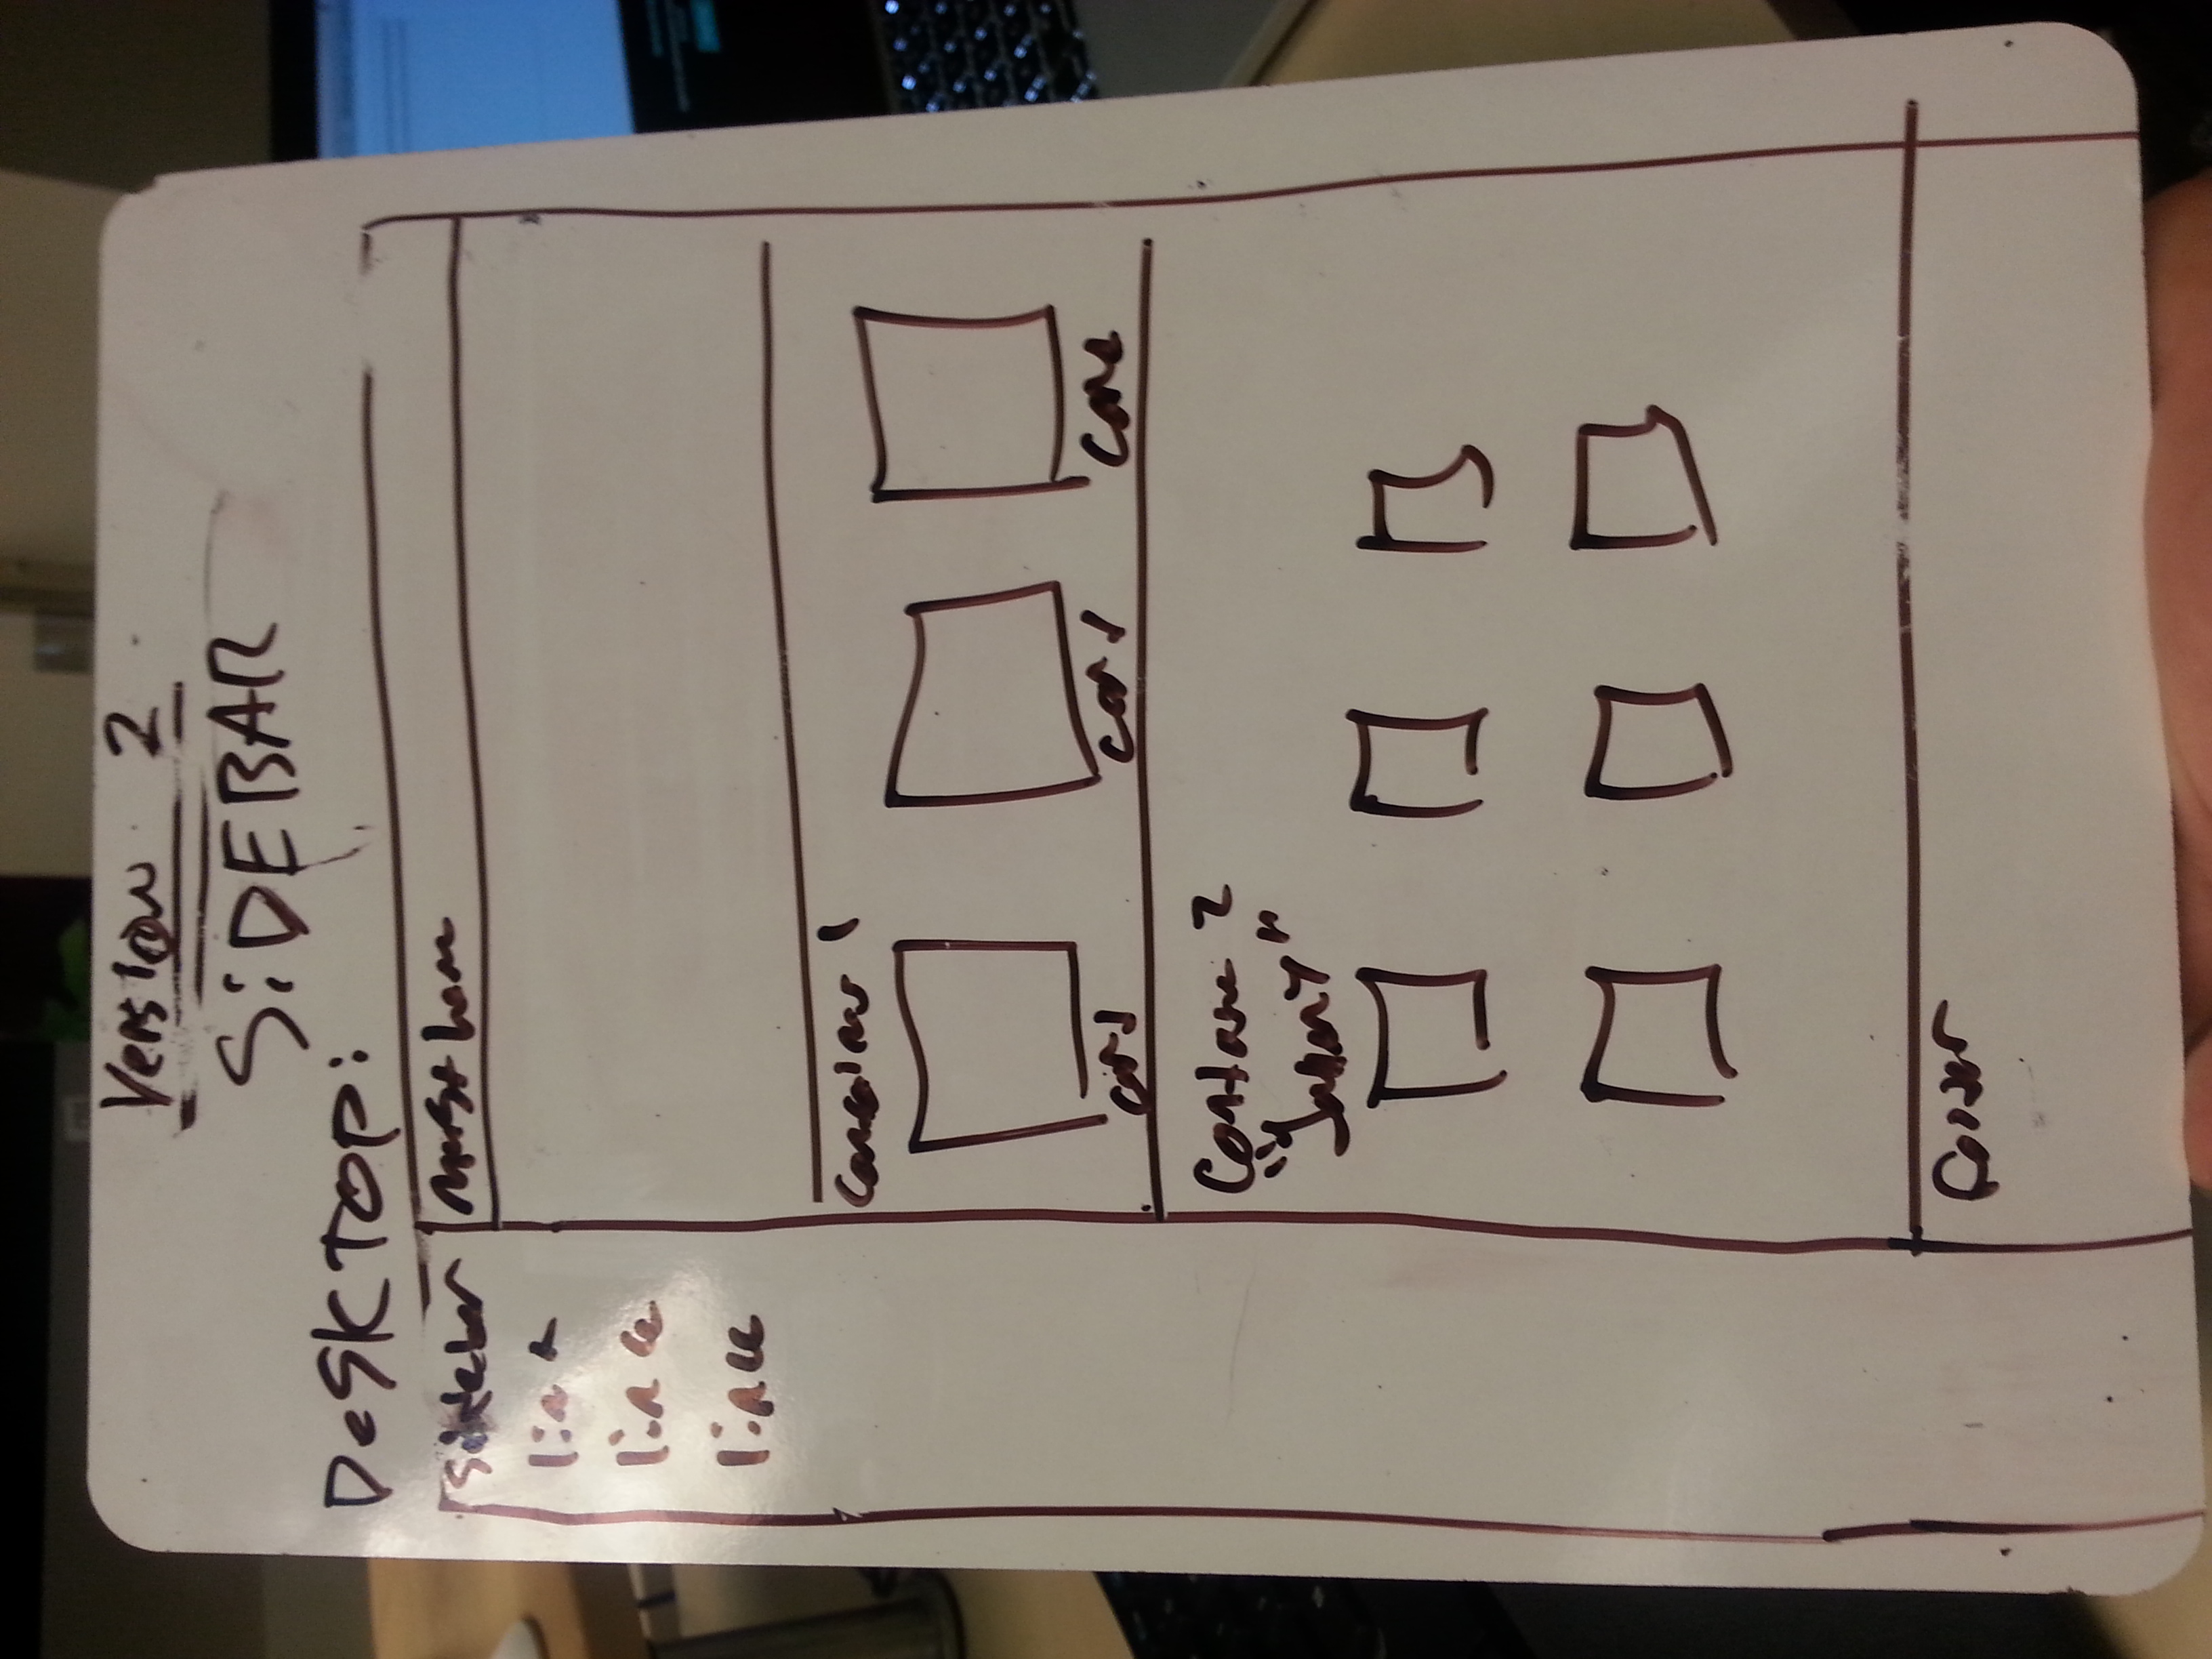 Version 2
SiDEBAR
DeSKTOP:
Sidebar
link
link
link
Container 1
card
card
card
Container 2
Footer